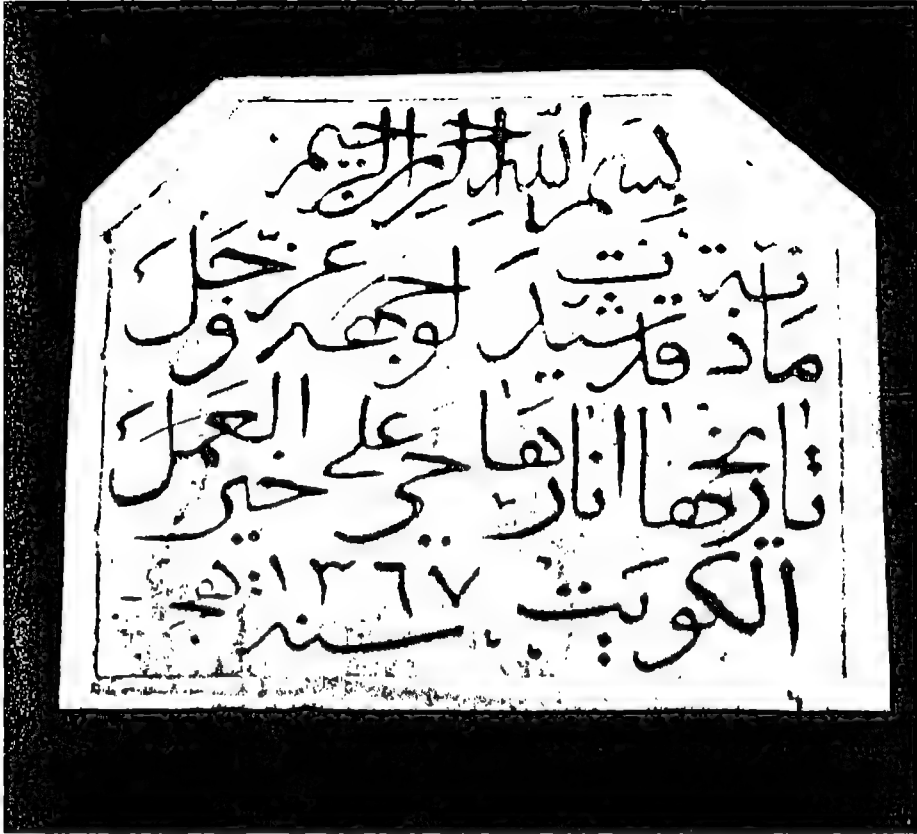 بسم الله الرحمن الرحيم
مأذنة قد شيدت لوجهه عز وجل
تاريخها انارها حي على خير العمل
الكويت سنه ١٣٦٧